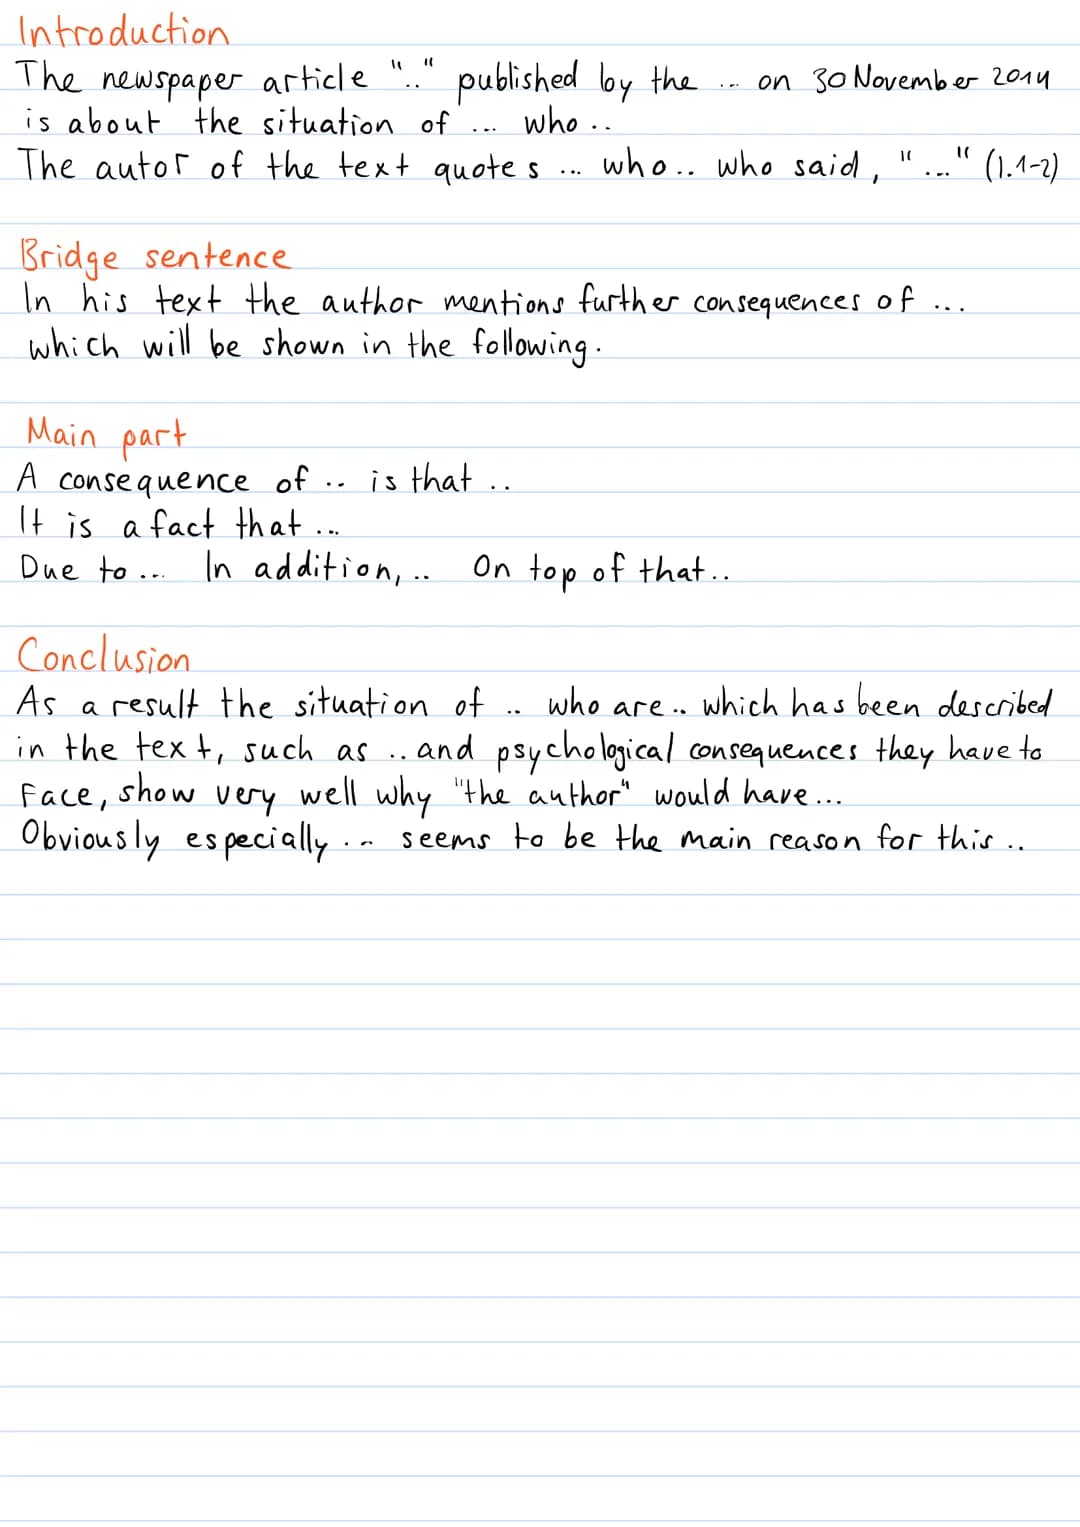 Introduction
The newspaper article ".." published by the ... on 30 November 2014
is about the situation of ... who ..
The autor of the text quotes ... who.. who said, "..." (l.1-2)
Bridge sentence
In his text the author mentions further consequences of ...
which will be shown in the following.
Main part
A consequence of .. is that ..
It is a fact that ...
Due to ... In addition, .. On top of that..
Conclusion
As a result the situation of .. who are .. which has been described
in the text, such as .. and psychological consequences they have to
Face, show very well why "the author" would have...
Obviously especially ... seems to be the main reason for this ..